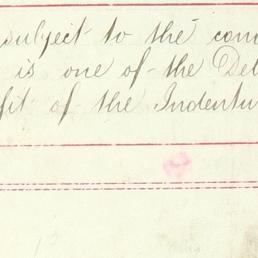 subject to the cond
is one of the Deb
fit of the Indentu